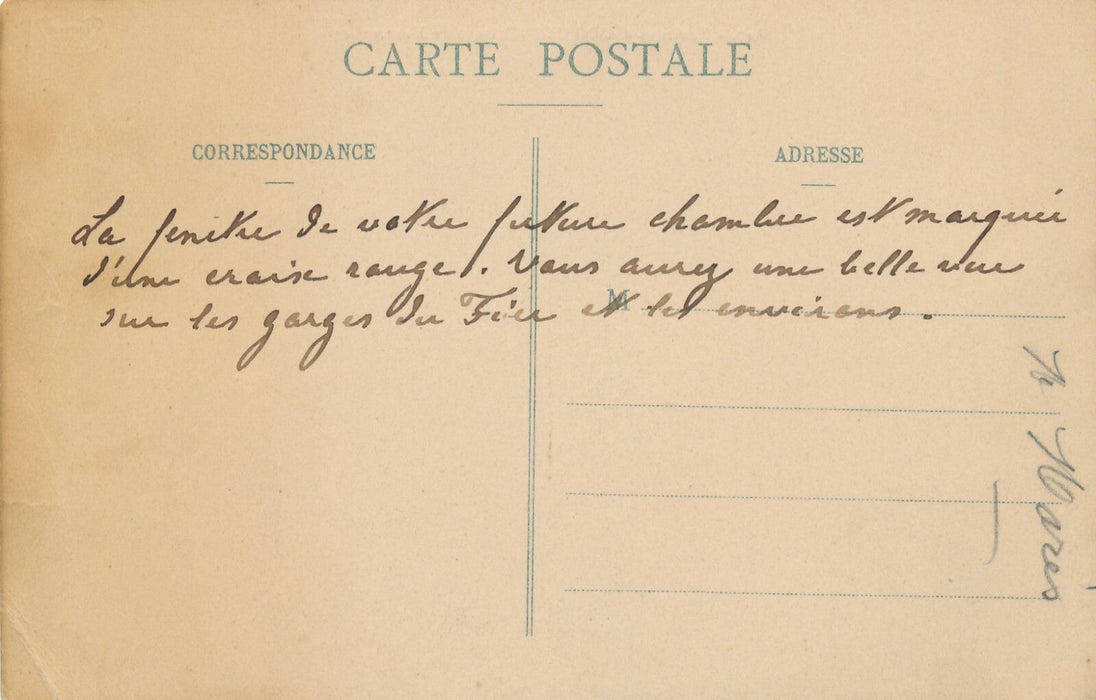 CARTE POSTALE
CORRESPONDANCE
ADRESSE
La fenêtre de votre future chambre est marquée
d'une croise rouge. Vous aurez une belle vue
sur les gorges du Fier et les environs.
M